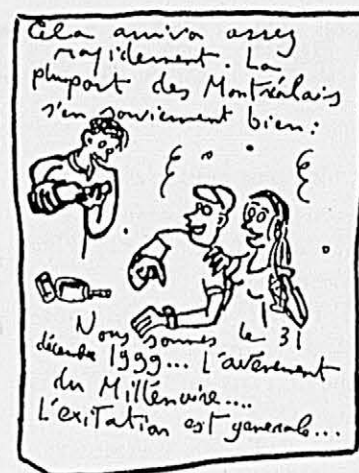 Cela arriva assez
rapidement. La
plupart des Montréalais
s'en souviennent bien:
Nous sommes le 31
décembre 1999... L'avènement
du Millénaire....
L'exitation est générale...